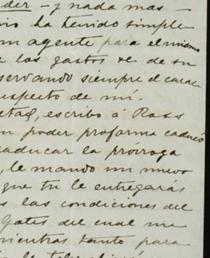 der - y nada mas
ha tenido simple
un agente para el mismo
los gastos de su
servando siempre el carac
respecto de mí.
etad, escribo á Ross
n poder proforma caducó
caducar la prórroga
, le mando un nuevo
que tu le entregarás
las condiciones del
Gates del cual me
mientras tanto para